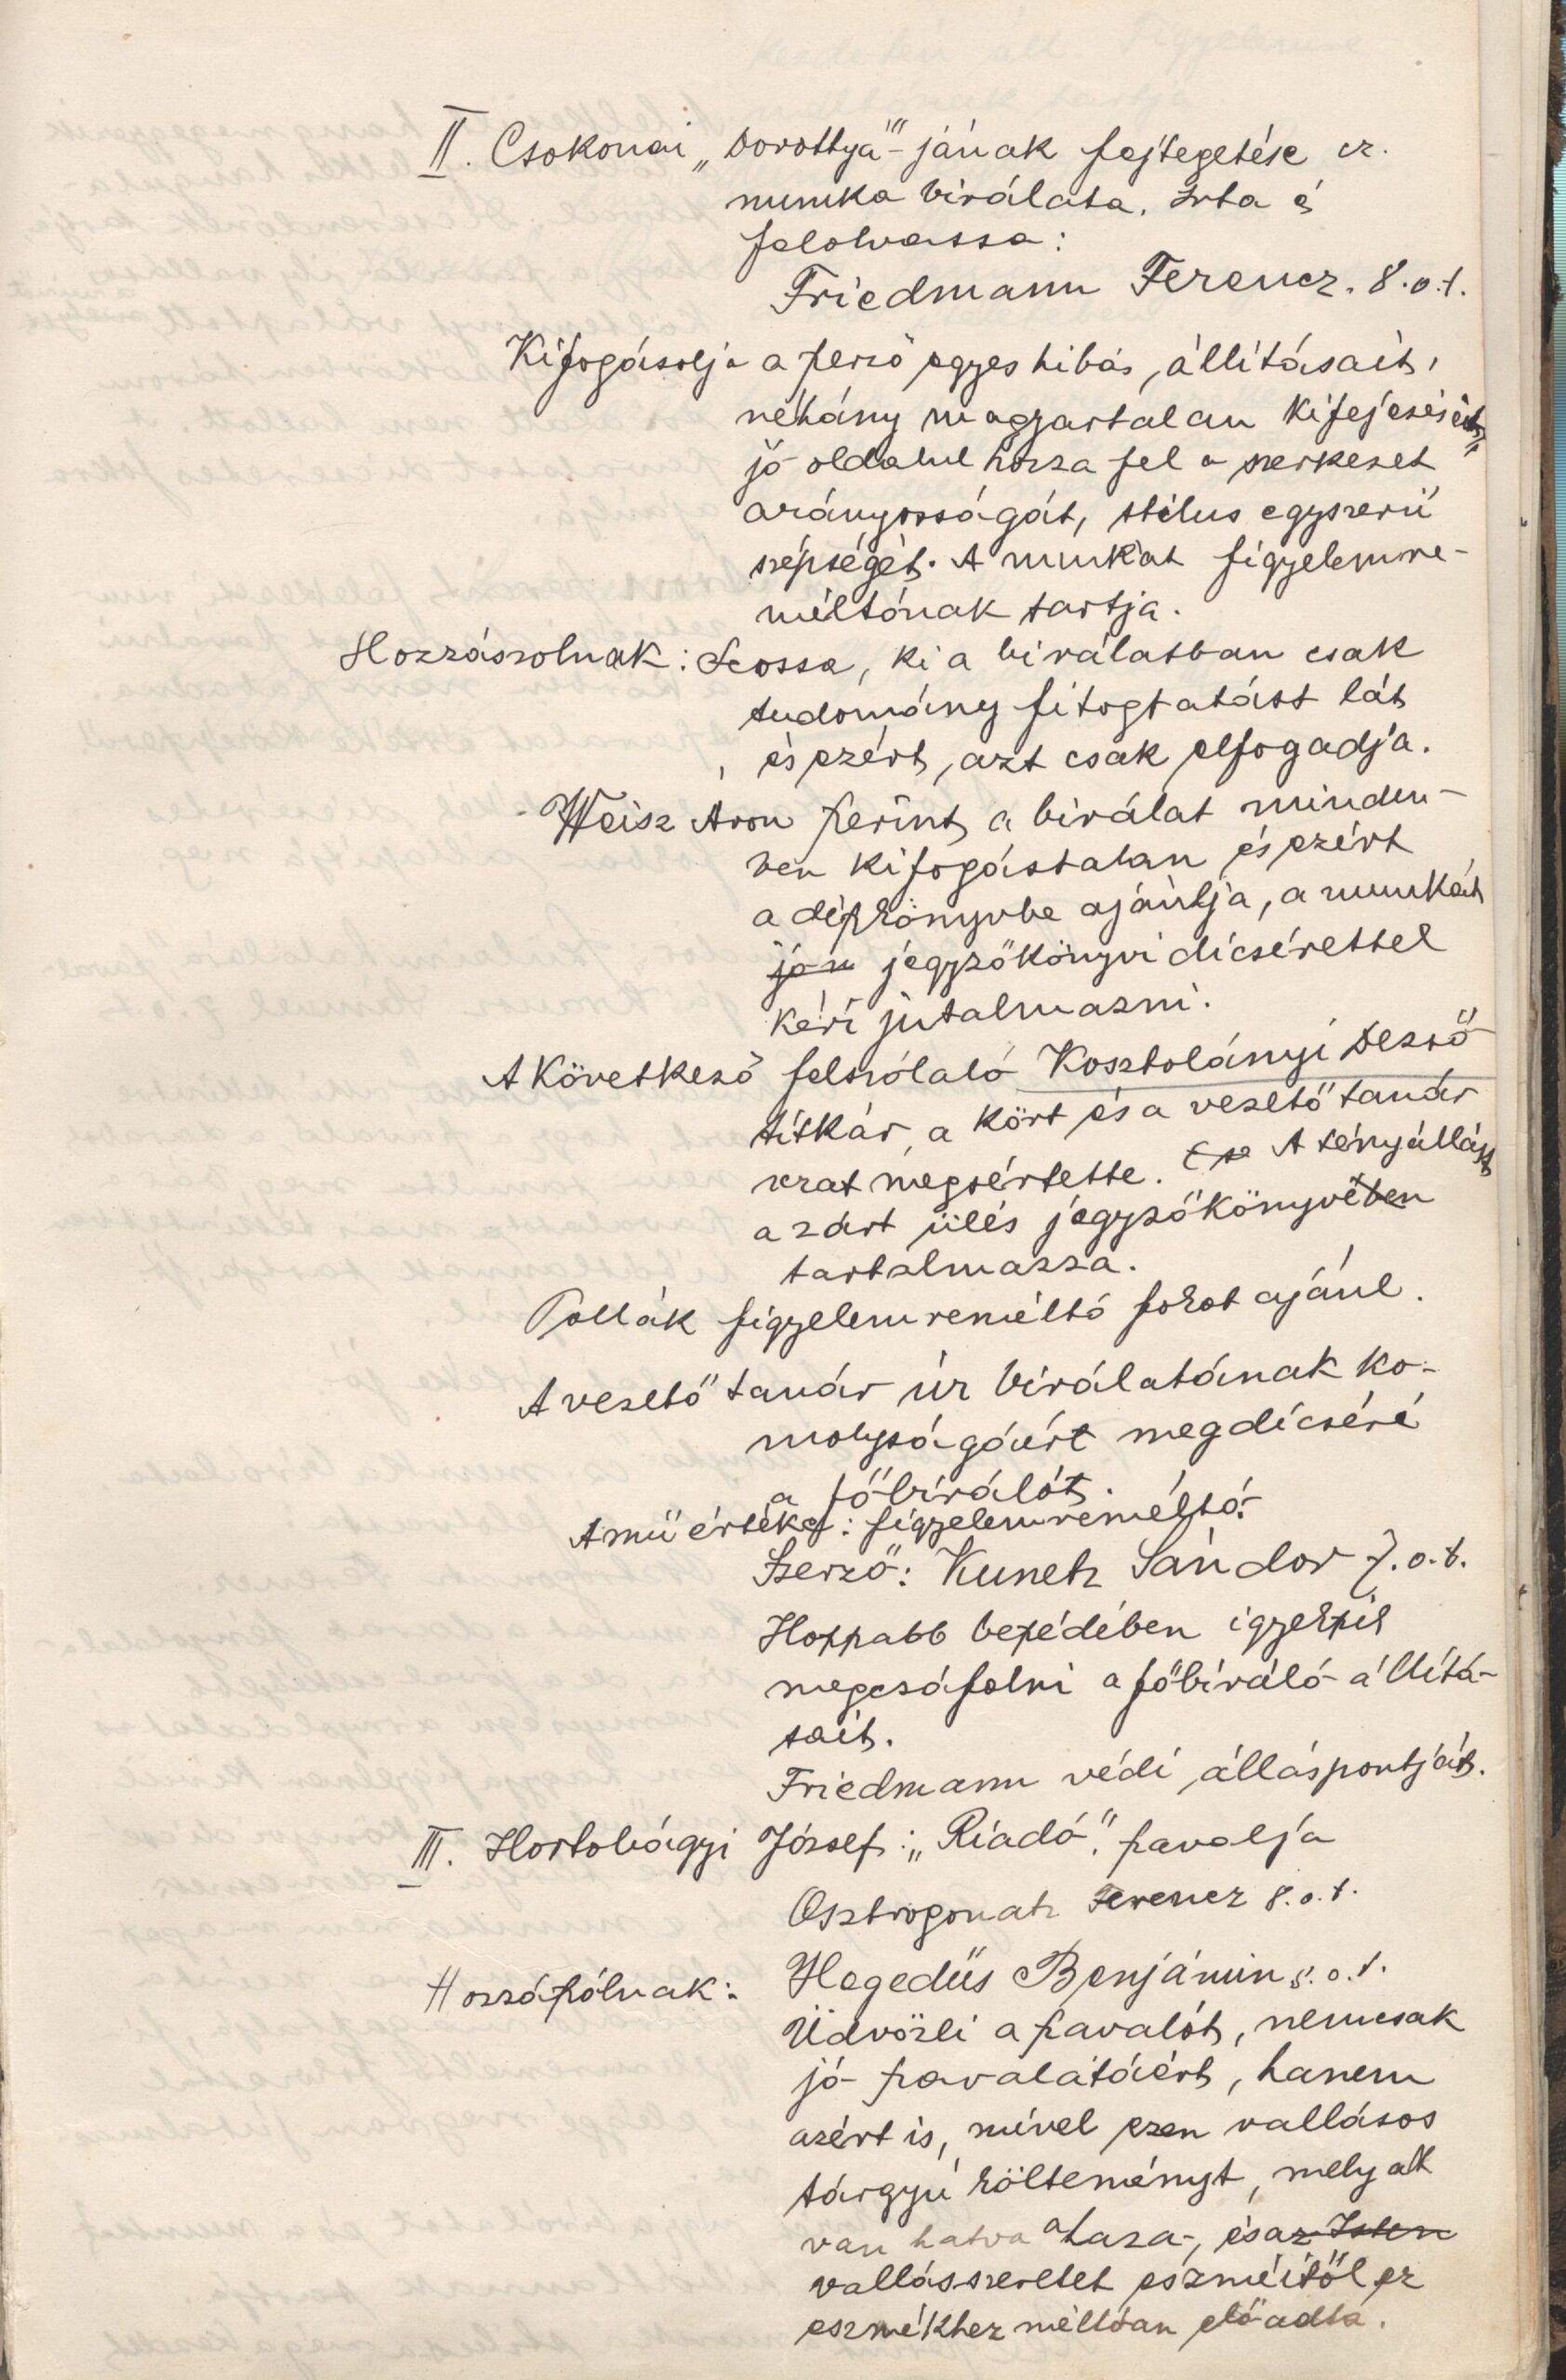 II. Csokonai „Dorottya"-jának fejtegetése cz.
munka birálata. Irta és
felolvassa:
Friedmann Ferencz. 8.o.t.
Kifogásolja a szerző egyes hibás állításait,
néhány magyartalan kifejezését,
jó oldalul hozza fel a szerkezet
arányosságát, stílus egyszerű
szépségét. A munkát figyelemre-
méltónak tartja.
Hozzászolnak: Scossa, ki a birálatban csak
tudomány fitogtatást lát
és ezért azt csak elfogadja.
Weisz Aron szerint a birálat minden-
ben kifogástalan és ezért
a díszkönyvbe ajánlja, a munkát
ján jegyzőkönyvi dicsérettel
kéri jutalmazni.
A következő felszólaló Kosztolányi Dezső
titkár a kört és a vezető tanár
urat megsértette. A tényállást
a zárt ülés jegyzőkönyvében
tartalmazza.
Pollák figyelemreméltó fokot ajánl.
A vezető tanár úr birálatának ko-
molyságáért megdicséri
a főbirálót.
A mű értéke: figyelemreméltó.
Szerző: Kunetz Sándor 7.o.t.
Hosszabb beszédében igyekszik
megcsáfolni a főbíráló állítá-
sait.
Friedmann védi álláspontját.
III. Hortobágyi József: „Riadó." szavalja
Osztrogonatz Ferencz 8.o.t.
Hozzászólnak: Hegedüs Benjámin 8.o.t.
Üdvözli a szavalót, nemcsak
jó szavalatáért, hanem
azért is, mivel ezen vallásos
tárgyú költeményt, mely át
van hatva a haza-, és az Isten
vallásszeretet eszméitől ez
eszmékhez méltóan előadta.